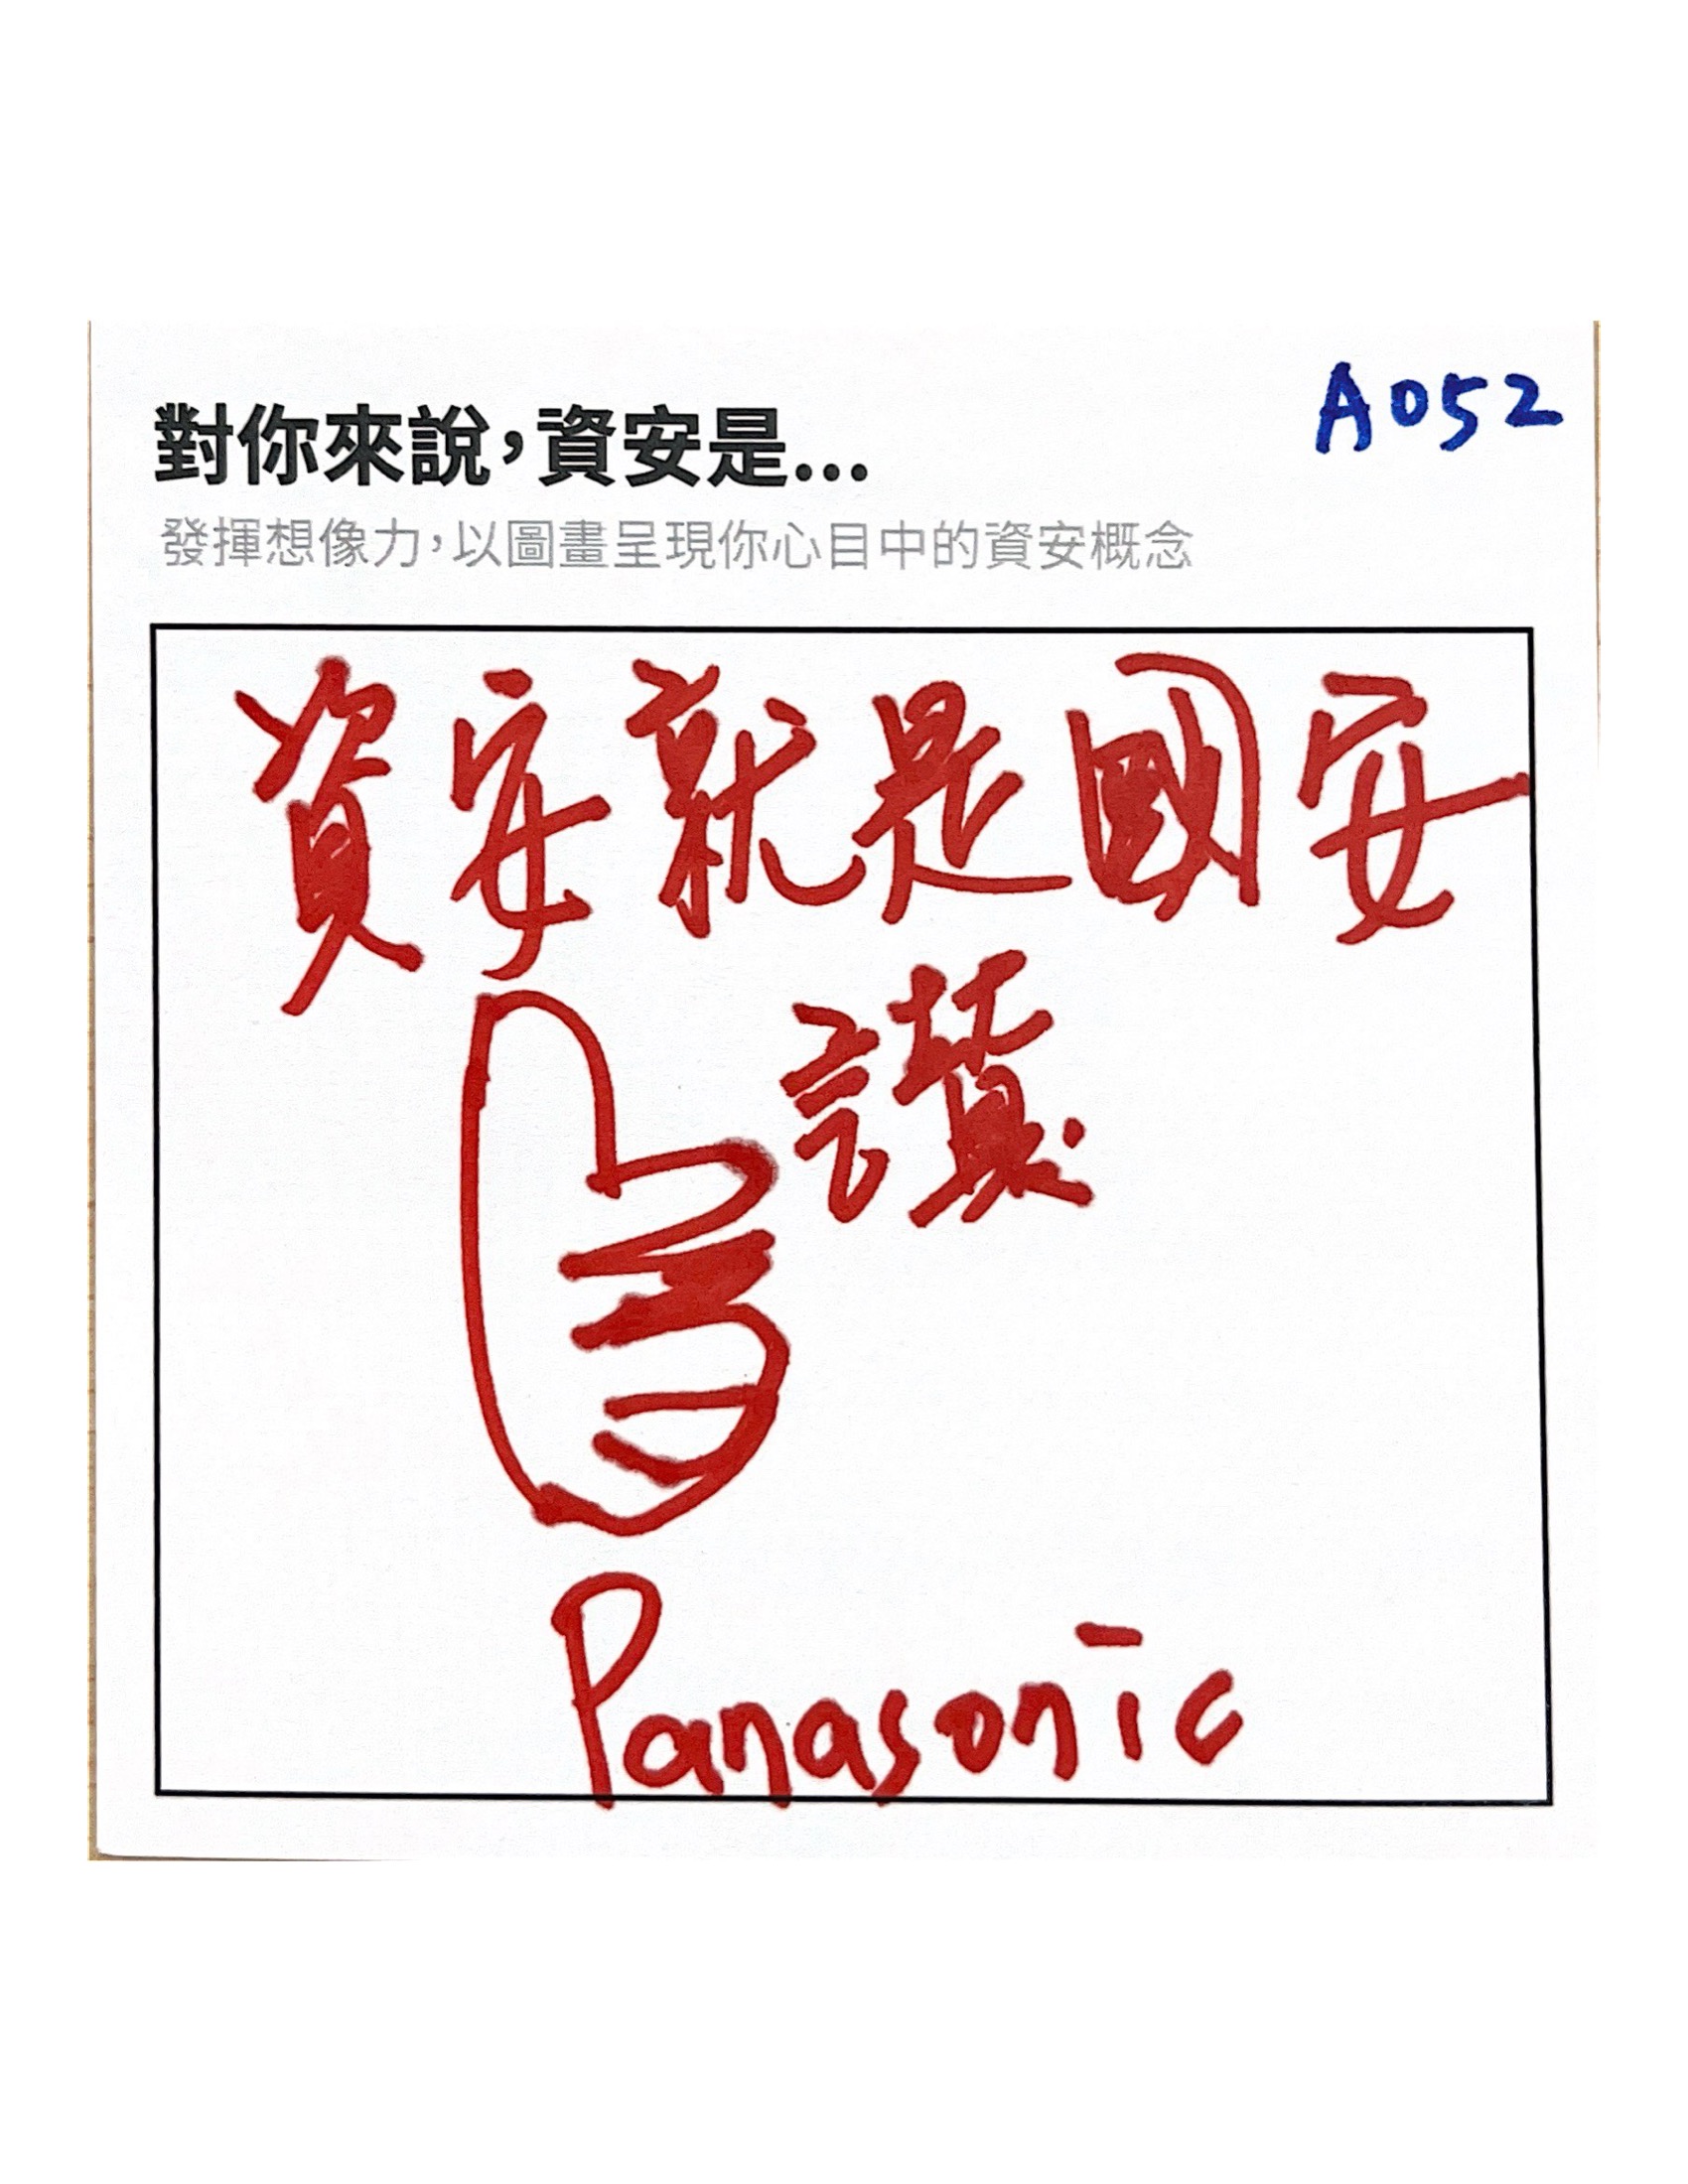 A052
對你來說，資安是...
發揮想像力，以圖畫呈現你心目中的資安概念
資安就是國安
讚
Panasonic